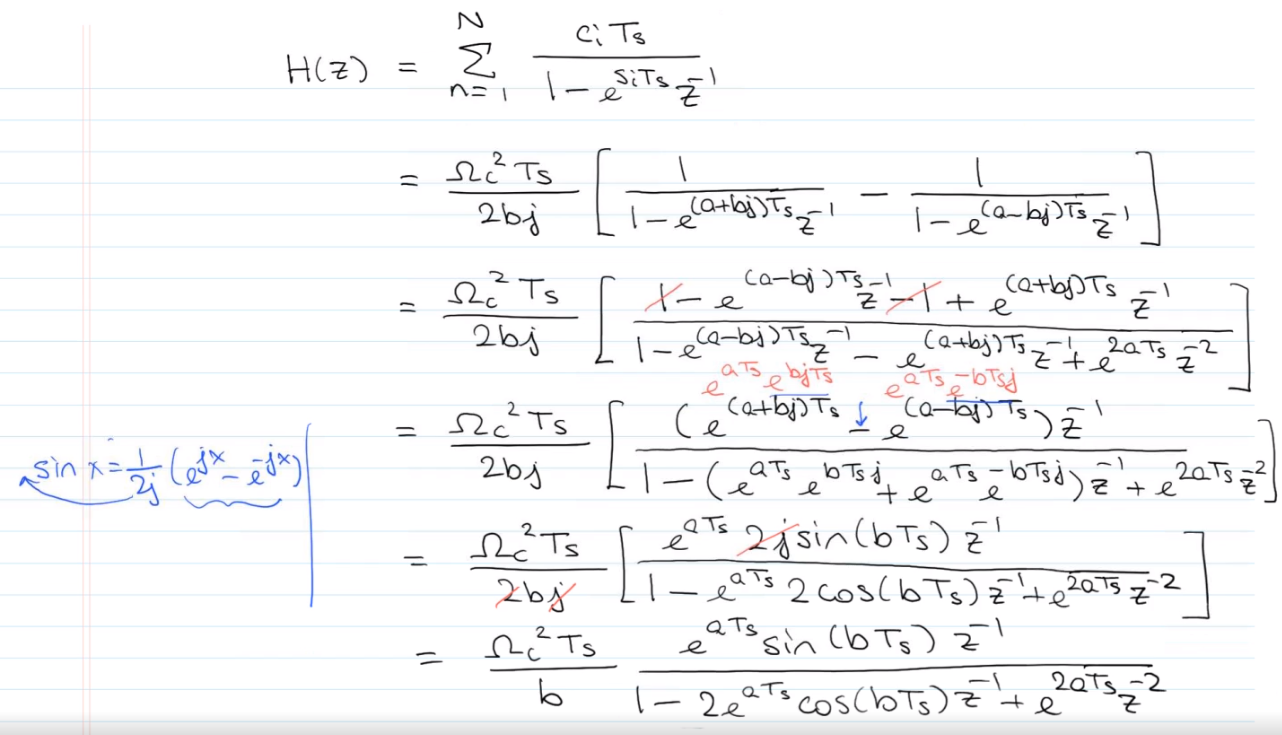 H(z) = N Σ n=1 ciTs / 1 − e^(siTs) z^-1
= Ωc^2 Ts / 2bj [ 1 / 1 − e^((a+bj)Ts) z^-1 − 1 / 1 − e^((a−bj)Ts) z^-1 ]
= Ωc^2 Ts / 2bj [ 1 − e^((a−bj)Ts) z^-1 − 1 + e^((a+bj)Ts) z^-1 / 1 − e^((a−bj)Ts) z^-1 − e^((a+bj)Ts) z^-1 + e^(2aTs) z^-2 ]
e^(aTs) e^(bjTs) e^(aTs) e^(−bTsj)
= Ωc^2 Ts / 2bj [ (e^((a+bj)Ts) − e^((a−bj)Ts)) z^-1 / 1 − (e^(aTs) e^(bTsj) + e^(aTs) e^(−bTsj)) z^-1 + e^(2aTs) z^-2 ]
sin x = 1/2j (e^(jx) − e^(−jx))
= Ωc^2 Ts / 2bj [ e^(aTs) 2j sin(bTs) z^-1 / 1 − e^(aTs) 2cos(bTs) z^-1 + e^(2aTs) z^-2 ]
= Ωc^2 Ts / b e^(aTs) sin(bTs) z^-1 / 1 − 2e^(aTs) cos(bTs) z^-1 + e^(2aTs) z^-2